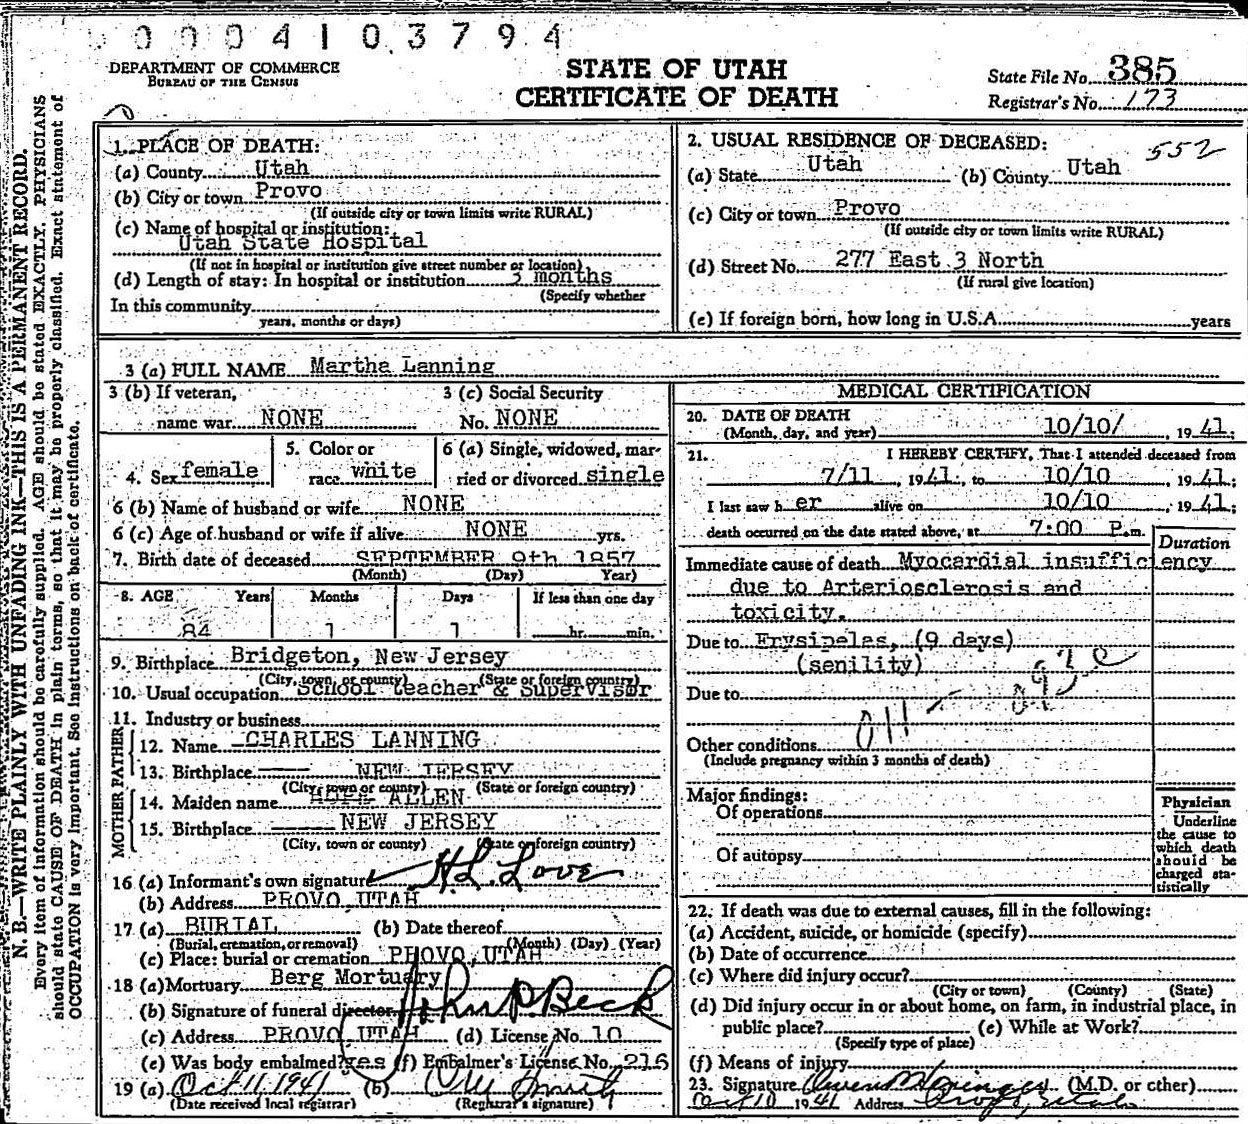 0004103794
DEPARTMENT OF COMMERCE
BUREAU OF THE CENSUS
STATE OF UTAH
CERTIFICATE OF DEATH
State File No. 385
Registrar's No. 173
N. B.—WRITE PLAINLY WITH UNFADING INK—THIS IS A PERMANENT RECORD.
Every item of information should be carefully supplied. AGE should be stated EXACTLY. PHYSICIANS
should state CAUSE OF DEATH in plain terms, so that it may be properly classified. Exact statement of
OCCUPATION is very important. See instructions on back of certificate.
1. PLACE OF DEATH:
(a) County Utah
(b) City or town Provo
(If outside city or town limits write RURAL)
(c) Name of hospital or institution:
Utah State Hospital
(If not in hospital or institution give street number or location)
(d) Length of stay: In hospital or institution 3 months
(Specify whether
In this community
years, months or days)
2. USUAL RESIDENCE OF DECEASED: 552
(a) State Utah (b) County Utah
(c) City or town Provo
(If outside city or town limits write RURAL)
(d) Street No. 277 East 3 North
(If rural give location)
(e) If foreign born, how long in U.S.A. years
3 (a) FULL NAME Martha Lanning
3 (b) If veteran, name war NONE
3 (c) Social Security No. NONE
4. Sex female
5. Color or race white
6 (a) Single, widowed, married or divorced single
6 (b) Name of husband or wife NONE
6 (c) Age of husband or wife if alive NONE yrs.
7. Birth date of deceased SEPTEMBER 9th 1857
(Month) (Day) Year)
8. AGE Years Months Days If less than one day
84 1 1 hr. min.
9. Birthplace Bridgeton, New Jersey
(City, town, or county) (State or foreign country)
10. Usual occupation School teacher & Supervisor
11. Industry or business
FATHER
12. Name CHARLES LANNING
13. Birthplace NEW JERSEY
(City, town or county) (State or foreign country)
MOTHER
14. Maiden name ALLEN
15. Birthplace NEW JERSEY
(City, town or county) (State or foreign country)
16 (a) Informant's own signature H. L. Love
(b) Address PROVO UTAH
17 (a) BURIAL (b) Date thereof
(Burial, cremation, or removal) (Month) (Day) (Year)
(c) Place: burial or cremation PROVO, UTAH
18 (a) Mortuary Berg Mortuary
(b) Signature of funeral director John P. Beck
(c) Address PROVO UTAH (d) License No. 10
(e) Was body embalmed? yes (f) Embalmer's License No. 216
19 (a) Oct 11, 1941 (b)
(Date received local registrar) (Registrar's signature)
MEDICAL CERTIFICATION
20. DATE OF DEATH
(Month, day, and year) 10/10/, 1941;
21. I HEREBY CERTIFY, That I attended deceased from
7/11, 1941, to 10/10, 1941;
I last saw her alive on 10/10, 1941;
death occurred on the date stated above, at 7:00 P.m.
Duration
Immediate cause of death Myocardial insufficiency
due to Arteriosclerosis and
toxicity.
Due to Erysipelas, (9 days)
(senility)
Due to
011
Other conditions
(Include pregnancy within 3 months of death)
Major findings:
Of operations
Of autopsy
Physician
Underline
the cause to
which death
should be
charged sta-
tistically
22. If death was due to external causes, fill in the following:
(a) Accident, suicide, or homicide (specify)
(b) Date of occurrence
(c) Where did injury occur?
(City or town) (County) (State)
(d) Did injury occur in or about home, on farm, in industrial place, in
public place? (e) While at Work?
(Specify type of place)
(f) Means of injury
23. Signature (M.D. or other)
Oct 10 1941 Address Provo, Utah